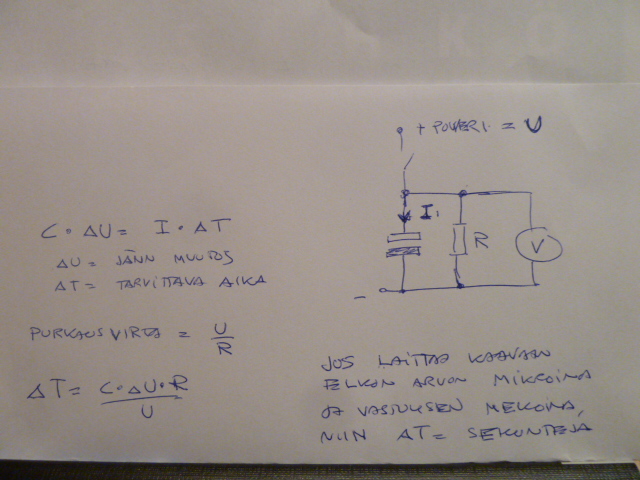 + POWER1. = U
I1
R
V
−
C · ΔU = I · ΔT
ΔU = JÄNN MUUTOS
ΔT = TARVITTAVA AIKA
PURKAUSVIRTA = U/R
ΔT = C·ΔU·R/U
JOS LAITTAA KAAVAAN
ELKON ARVON MIKROINA
JA VASTUKSEN MEKOINA,
NIIN ΔT = SEKUNTEJA